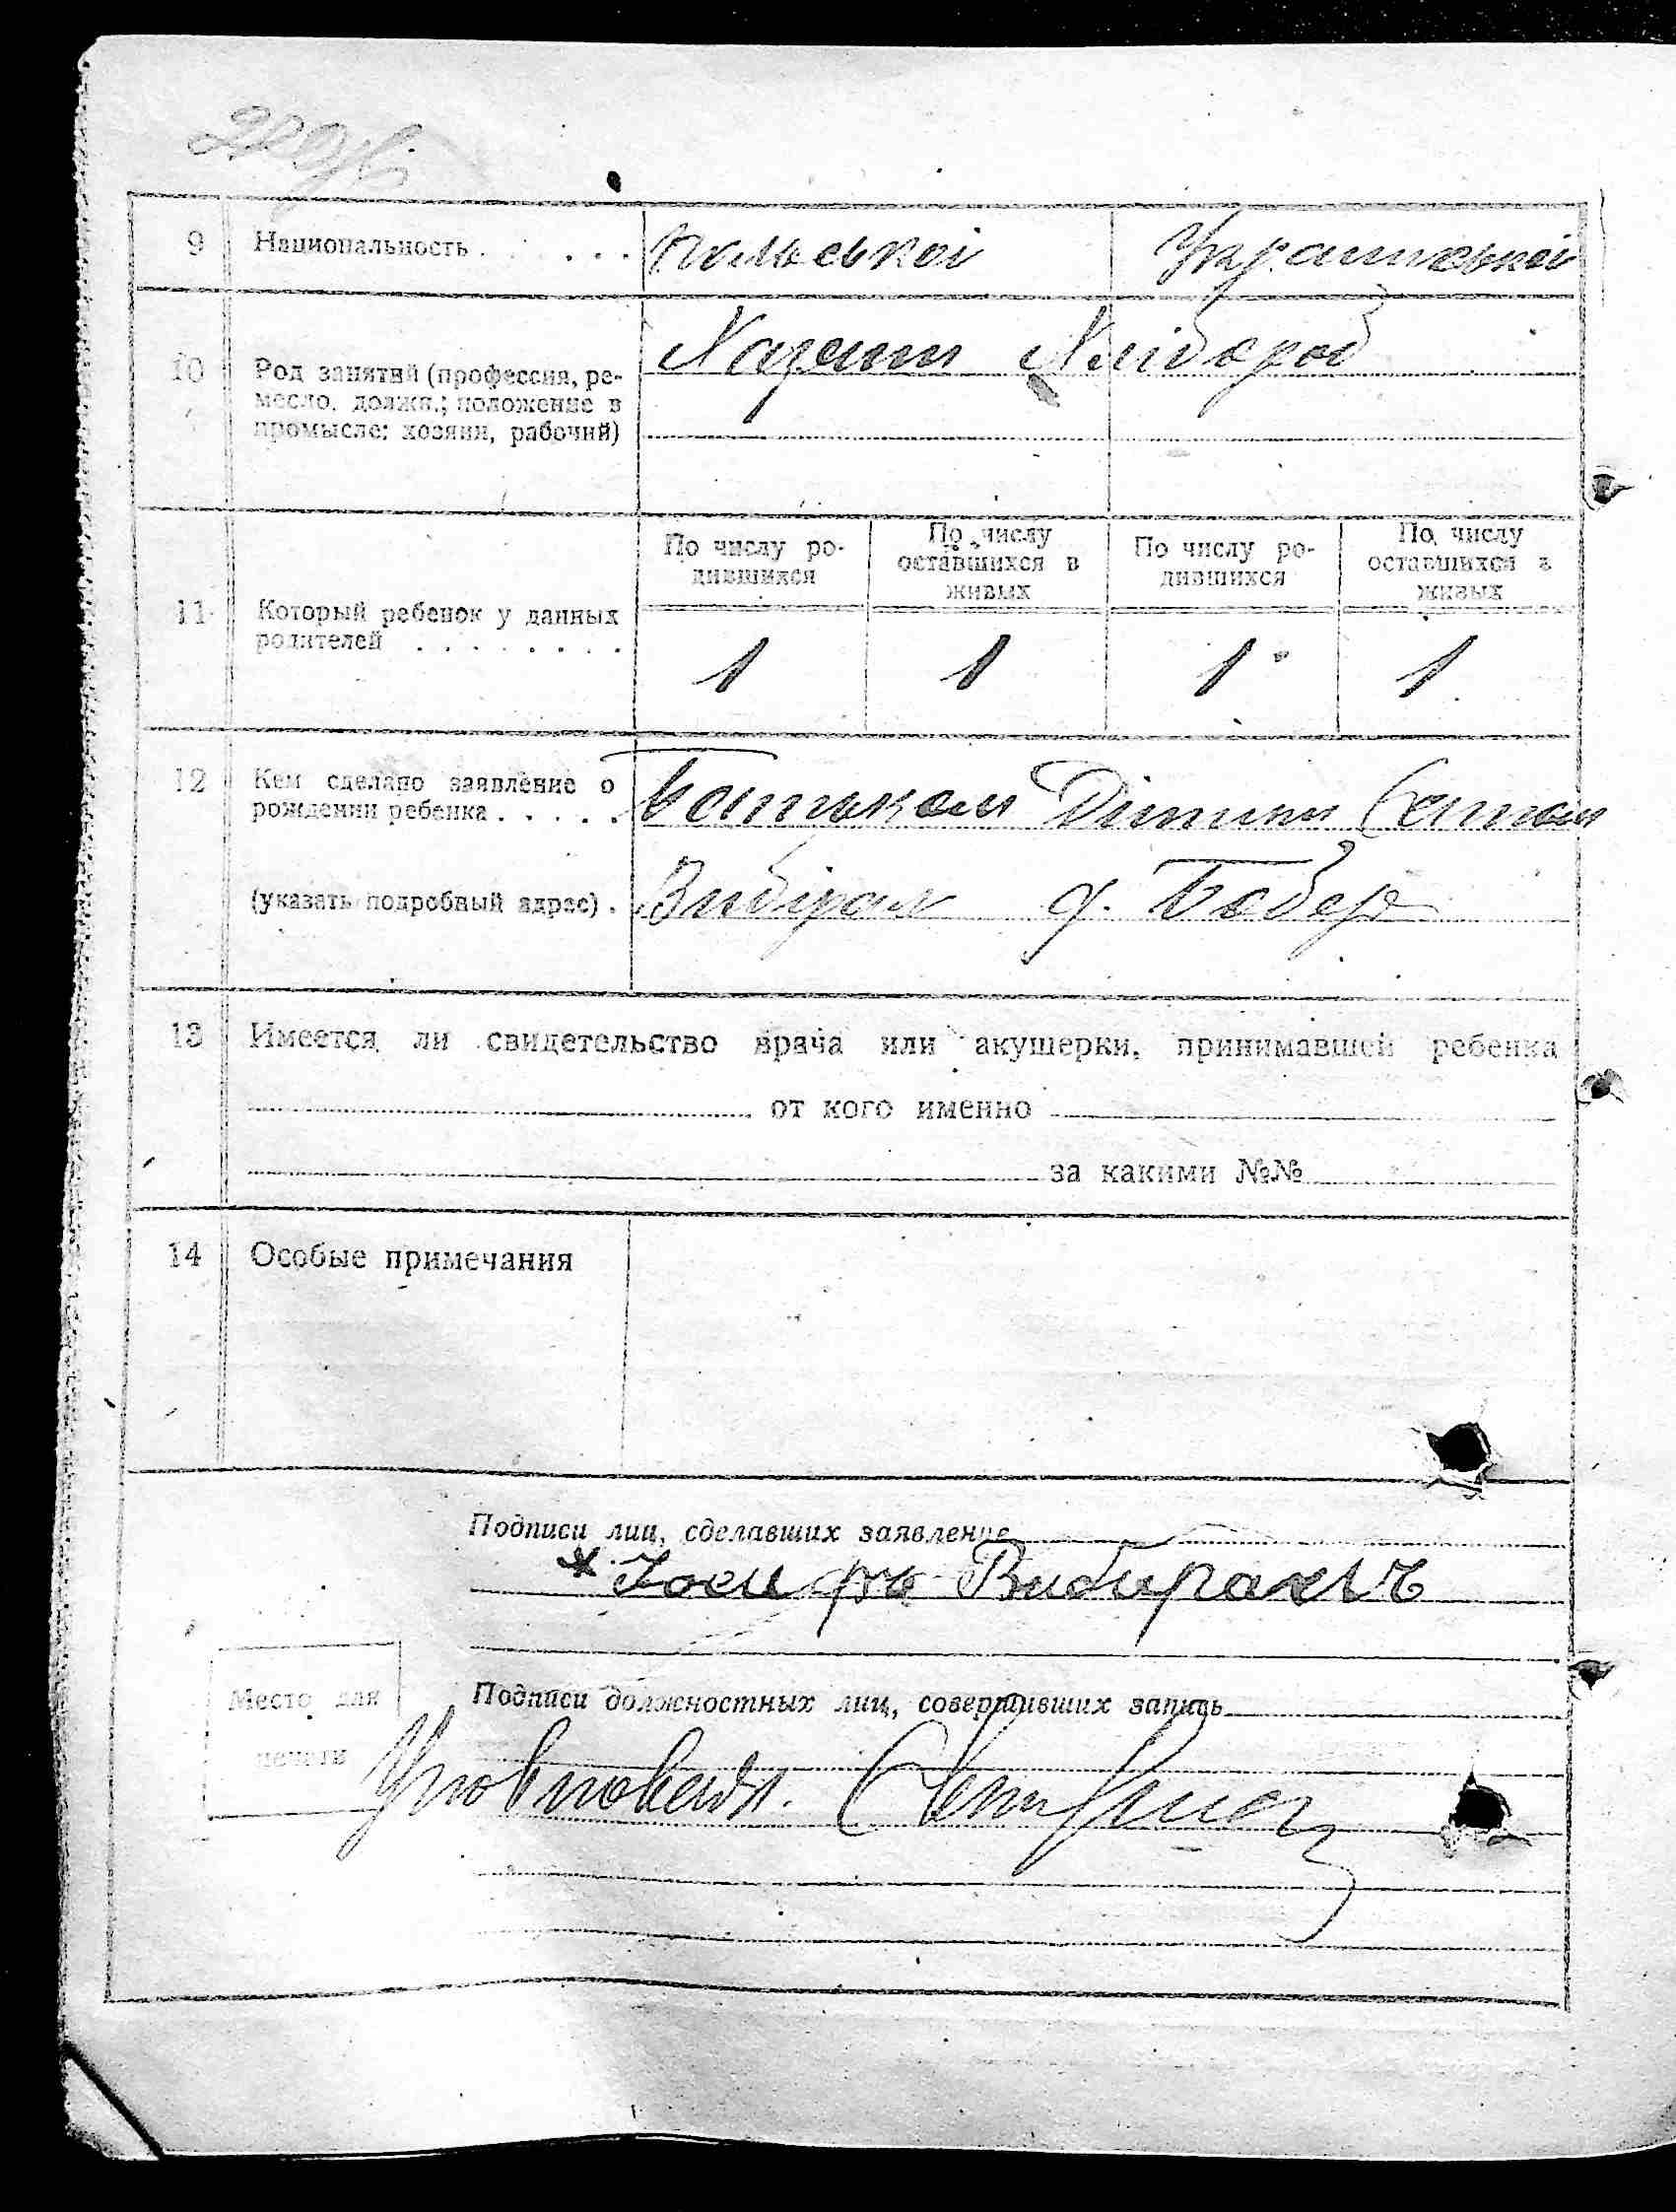 9 Национальность . . . . . . Польської Української
10 Род занятий (профессия, ре-
месло, должн.; положение в
промысле: хозяин, рабочий)
Хлібороб
11 Который ребенок у данных
родителей . . . . . . . .
По числу ро-
дившихся
По числу
оставшихся в
живых
По числу ро-
дившихся
По числу
оставшихся в
живых
1 1 1 1
12 Кем сделано заявление о
рождении ребенка . . . . .
Батьком
(указать подробный адрес) .
13 Имеется ли свидетельство врача или акушерки, принимавшей ребенка
от кого именно
за какими №№
14 Особые примечания
Подписи лиц, сделавших заявление
Иосифъ
Место для
печати
Подписи должностных лиц, совершивших запись